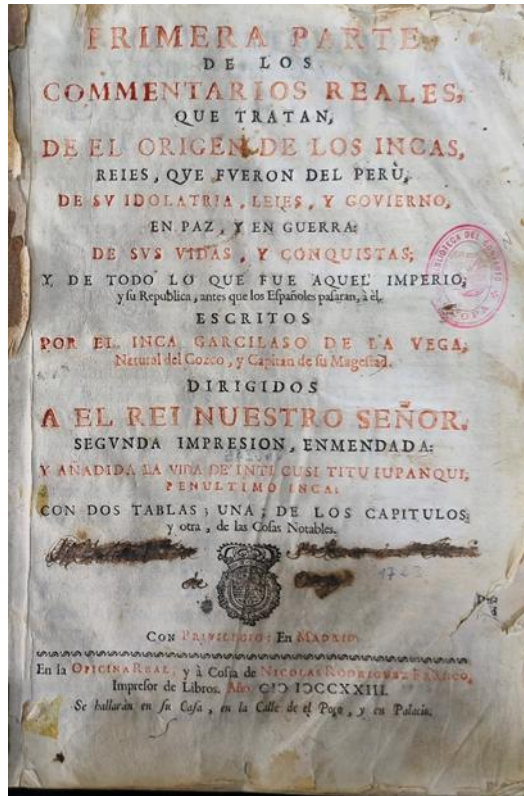 PRIMERA PARTE
DE LOS
COMMENTARIOS REALES,
QUE TRATAN,
DE EL ORIGEN DE LOS INCAS,
REIES, QVE FVERON DEL PERÙ,
DE SV IDOLATRIA, LEIES, Y GOVIERNO,
EN PAZ, Y EN GUERRA:
DE SVS VIDAS, Y CONQUISTAS;
Y DE TODO LO QUE FUE AQUEL IMPERIO,
y su Republica, antes que los Españoles pasaran, à èl.
ESCRITOS
POR EL INCA GARCILASO DE LA VEGA,
Natural del Cozco, y Capitan de su Magestad.
DIRIGIDOS
A EL REI NUESTRO SEÑOR.
SEGVNDA IMPRESION, ENMENDADA:
Y AÑADIDA LA VIDA DE INTI CUSI TITU IUPANQUI,
PENULTIMO INCA:
CON DOS TABLAS; UNA; DE LOS CAPITULOS;
y otra, de las Cosas Notables.
de
1723
CON PRIVILEGIO: En MADRID.
En la OFICINA REAL, y à Costa de NICOLAS RODRIGUEZ FRANCO,
Impresor de Libros. Año CIↃ IↃCCXXIII.
Se hallaràn en su Casa, en la Calle de el Poço, y en Palacio.
BIBLIOTECA DEL CONVENTO
OCOPA